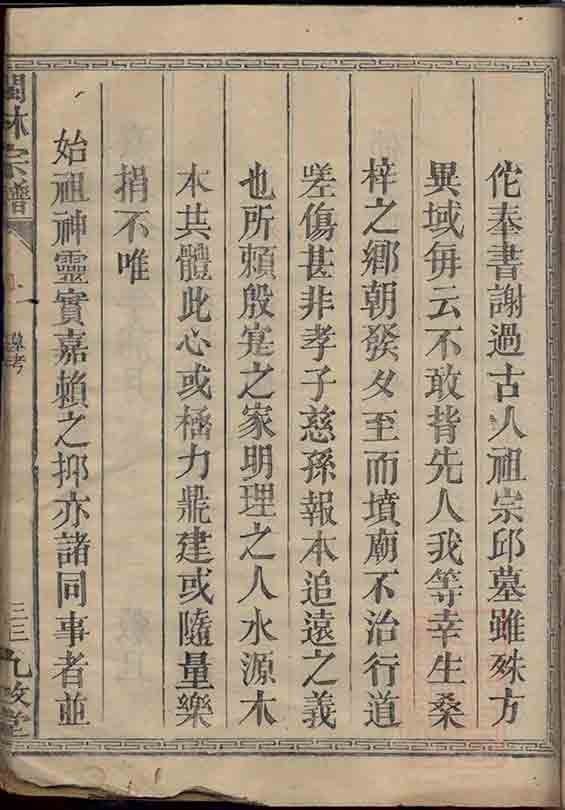 佗奉書謝過古人祖宗邱墓雖殊方
異域每云不敢背先人我等幸生桑
梓之鄉朝發夕至而墳廟不治行道
嗟傷甚非孝子慈孫報本追遠之義
也所頼殷寔之家明理之人水源木
本共體此心或極力鼎建或隨量樂
捐不唯
始祖神靈實嘉賴之抑亦諸同事者並
閩林宗譜
考
三三 九牧堂